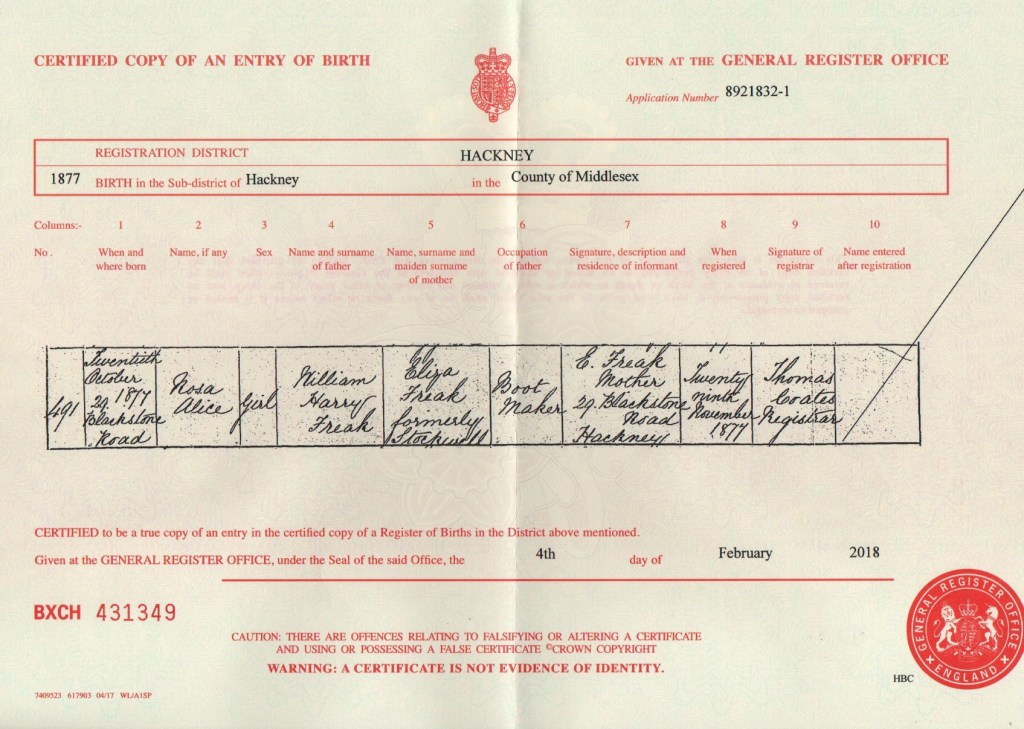 CERTIFIED COPY OF AN ENTRY OF BIRTH
GIVEN AT THE GENERAL REGISTER OFFICE
Application Number 8921832-1
REGISTRATION DISTRICT HACKNEY
1877 BIRTH in the Sub-district of Hackney in the County of Middlesex
Columns:- 1 2 3 4 5 6 7 8 9 10
No. When and where born Name, if any Sex Name and surname of father Name, surname and maiden surname of mother Occupation of father Signature, description and residence of informant When registered Signature of registrar Name entered after registration
491
Twentieth
October
1877
29 Blackstone
Road
Rosa
Alice
Girl
William
Harry
Freak
Eliza
Freak
formerly
Stockwell
Boot
Maker
E. Freak
Mother
29 Blackstone
Road
Hackney
Twenty
ninth
November
1877
Thomas
Coates
Registrar
CERTIFIED to be a true copy of an entry in the certified copy of a Register of Births in the District above mentioned.
Given at the GENERAL REGISTER OFFICE, under the Seal of the said Office, the 4th day of February 2018
BXCH 431349
CAUTION: THERE ARE OFFENCES RELATING TO FALSIFYING OR ALTERING A CERTIFICATE
AND USING OR POSSESSING A FALSE CERTIFICATE ©CROWN COPYRIGHT
WARNING: A CERTIFICATE IS NOT EVIDENCE OF IDENTITY.
GENERAL REGISTER OFFICE
ENGLAND
HBC
7409523 617903 04/17 WL/A1SP